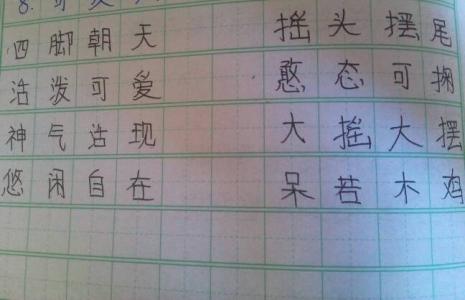 8.
四脚朝天 摇头摆尾
活泼可爱 憨态可掬
神气活现 大摇大摆
悠闲自在 呆若木鸡